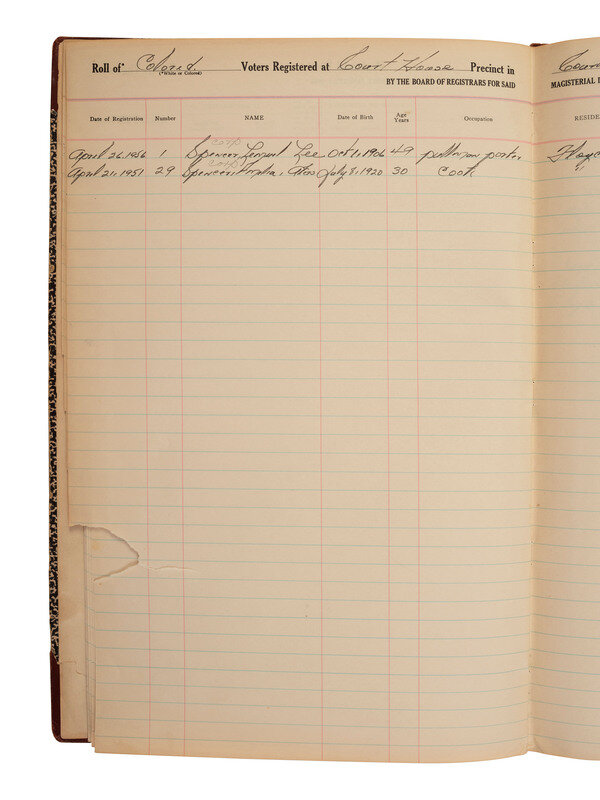 Roll of Colored Voters Registered at Court House Precinct in
(White or Colored)
BY THE BOARD OF REGISTRARS FOR SAID
MAGISTERIAL
Date of Registration Number NAME Date of Birth Age Years Occupation RESIDE
April 26, 1956 1 Spencer Lee Oct 1, 1906 49 pullman porter Floyd
April 21, 1951 29 Spencer, Mrs July 8, 1920 30 Cook "